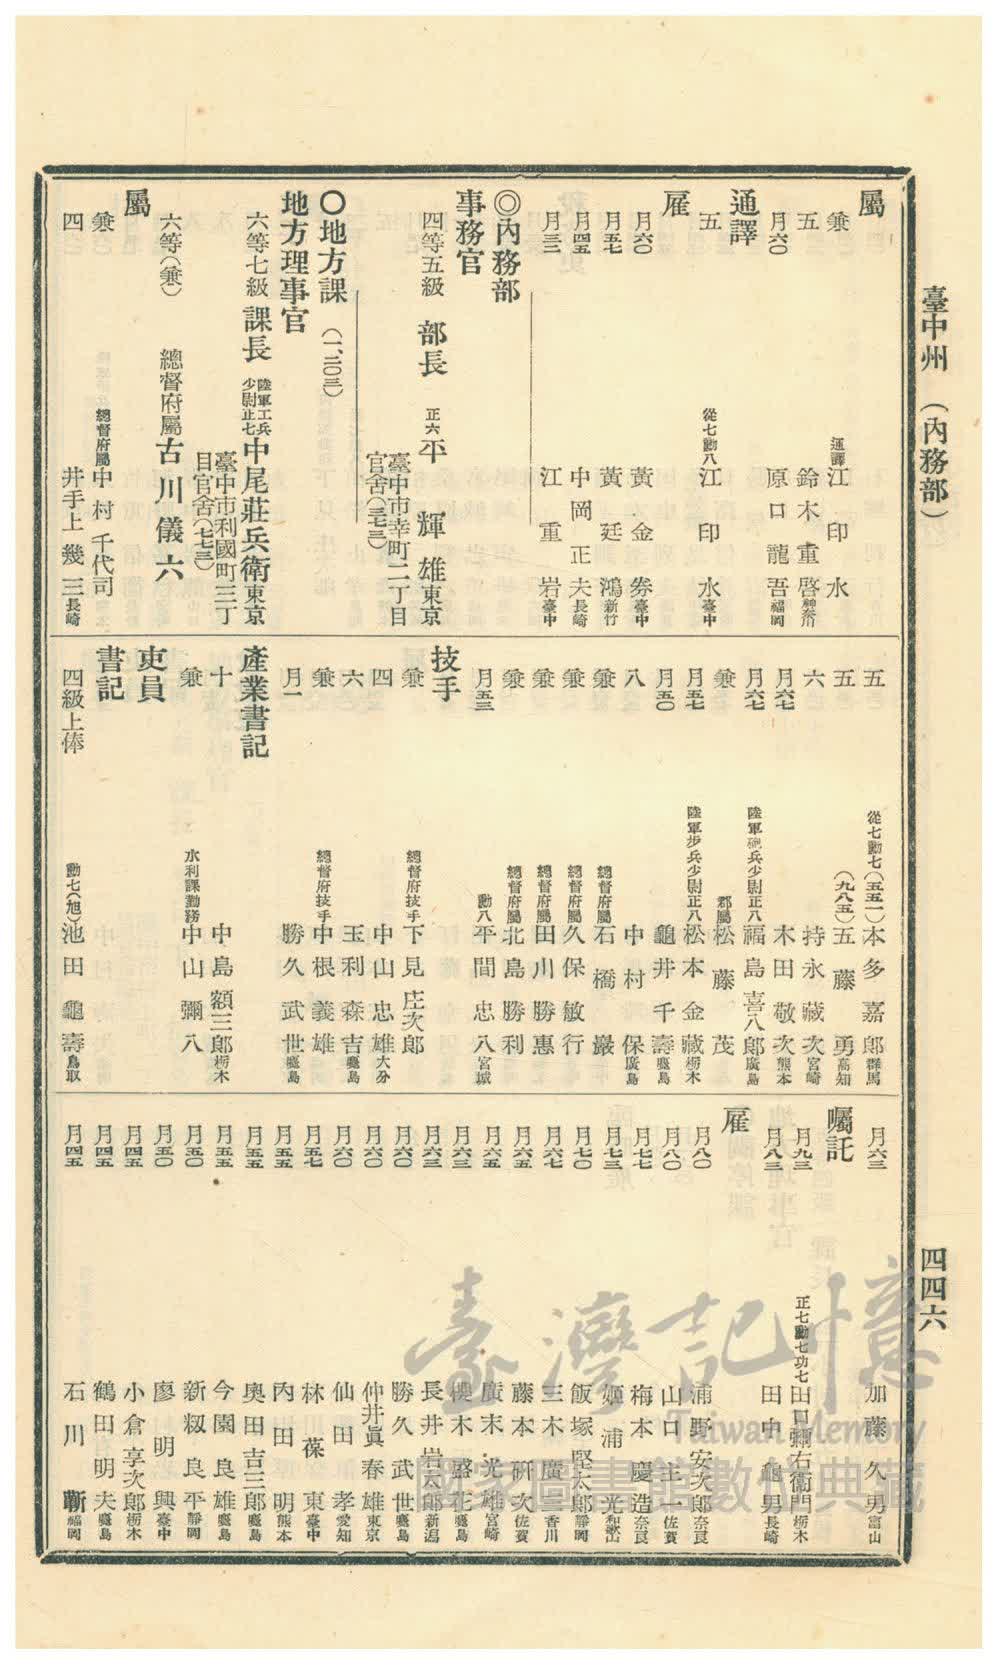 臺中州 (內務部) 四四六
屬
兼 通譯 江印水
五 鈴木重啓 神奈川
月六〇 原口龍吾 福岡
通譯
五 從七勳八 江印水 臺中
雇
月六〇 黃金劵 臺中
月五七 黃廷鴻 新竹
月四五 中岡正夫 長崎
月三三 江重岩 臺中
◎內務部
事務官
四等五級 部長 正六 平輝雄 東京
臺中市幸町二丁目
官舍(三七三)
〇地方課 (一、二〇三)
地方理事官
六等七級 課長 陸軍工兵少尉正七 中尾莊兵衛 東京
臺中市利國町三丁
目官舍(七七三)
六等(兼) 總督府屬 古川儀六
屬
兼 總督府屬 中村千代司
四 井手上幾三 長崎
五 從七勳七(五五一) 本多嘉郎 群馬
五 (九八五) 五藤勇 高知
六 持永藏次 宮崎
月六七 木田敬次 熊本
月六七 陸軍砲兵少尉正八 福島喜八郎 廣島
兼 郡屬 松藤茂
月五七 陸軍步兵少尉正八 松本金藏 栃木
月五〇 龜井千壽 鹿島
八 中村保 廣島
兼 總督府屬 石橋巖
兼 總督府屬 久保敏行
兼 總督府屬 田川勝惠
兼 總督府屬 北島勝利
月五三 勳八 平間忠八 宮城
技手
兼 總督府技手 下見庄次郎
四 中山忠雄 大分
六 玉利森吉 鹿島
兼 總督府技手 中根義雄
月一 勝久武世 鹿島
產業書記
十 中島額三郎 栃木
兼 水利課勤務 中山彌八
吏員
書記
四級上俸 勳七(旭) 池田龜壽 鳥取
月六三 加藤久男 富山
囑託
月九三 正七勳七功七 田口彌右衛門 栃木
月八三 田中龜男 長崎
雇
月八〇 浦野安次郎 奈良
月八〇 山口主一 佐賀
月七七 梅本慶造 奈良
月七三 姬浦光 和歌山
月七〇 飯塚堅太郎 靜岡
月六七 三木廣三 香川
月六六 藤本研次 佐賀
月六五 廣末光雄 宮崎
月六三 櫻木盛花 鹿島
月六三 長井岩太郎 新潟
月六〇 勝久武世 鹿島
月六〇 仲井眞春雄 東京
月六〇 仙田孝 愛知
月五七 林葆東 臺中
月五五 內田明 熊本
月五五 奧田吉三郎 鹿島
月五五 今園良雄 鹿島
月五〇 新籾良平 靜岡
月五〇 廖明興 臺中
月四五 小倉享次郎 栃木
月四五 鶴田明夫 鹿島
月四五 石川嶄 福岡
臺灣記憶
Taiwan Memory
國家圖書館數位典藏